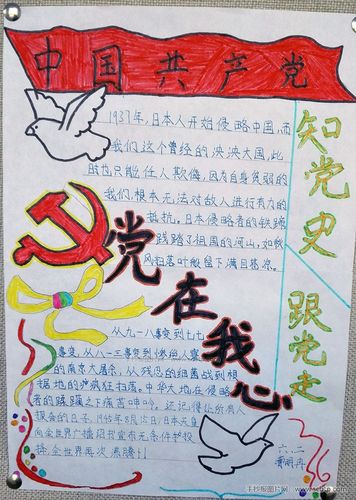 中国共产党
1937年,日本人开始侵略中国,而
我们这个曾经的泱泱大国,此
时也只能任人欺侮,因为自身贫弱的
我们根本无法对敌人进行有力的
抵抗。日本侵略者的铁蹄
践踏了祖国的河山,如秋
风扫落叶般留下满目苍凉。
知党史
跟党走
党在我心
从九一八事变到七七
事变,从八一三事变到惨绝人寰
的南京大屠杀,从残忍的细菌战到根
据地的疯狂扫荡。中华大地在侵略
者的蹂躏之下痛苦呻吟。还记得让所有人
振奋的日子,1945年8月15日,日本天皇
向全世界广播诏书宣布无条件投
降,全世界再次沸腾了!
六.二